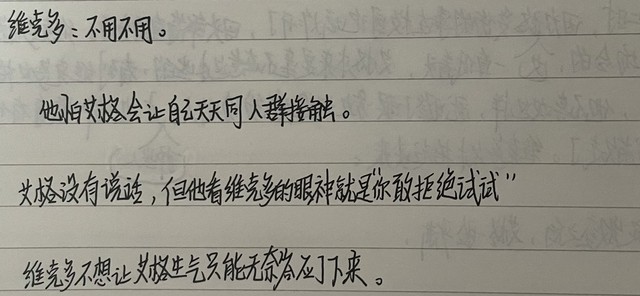 维克多：不用不用。
他怕艾格会让自己天天同人群接触。
艾格没有说话，但他看维克多的眼神就是“你敢拒绝试试”
维克多不想让艾格生气只能无奈答应了下来。